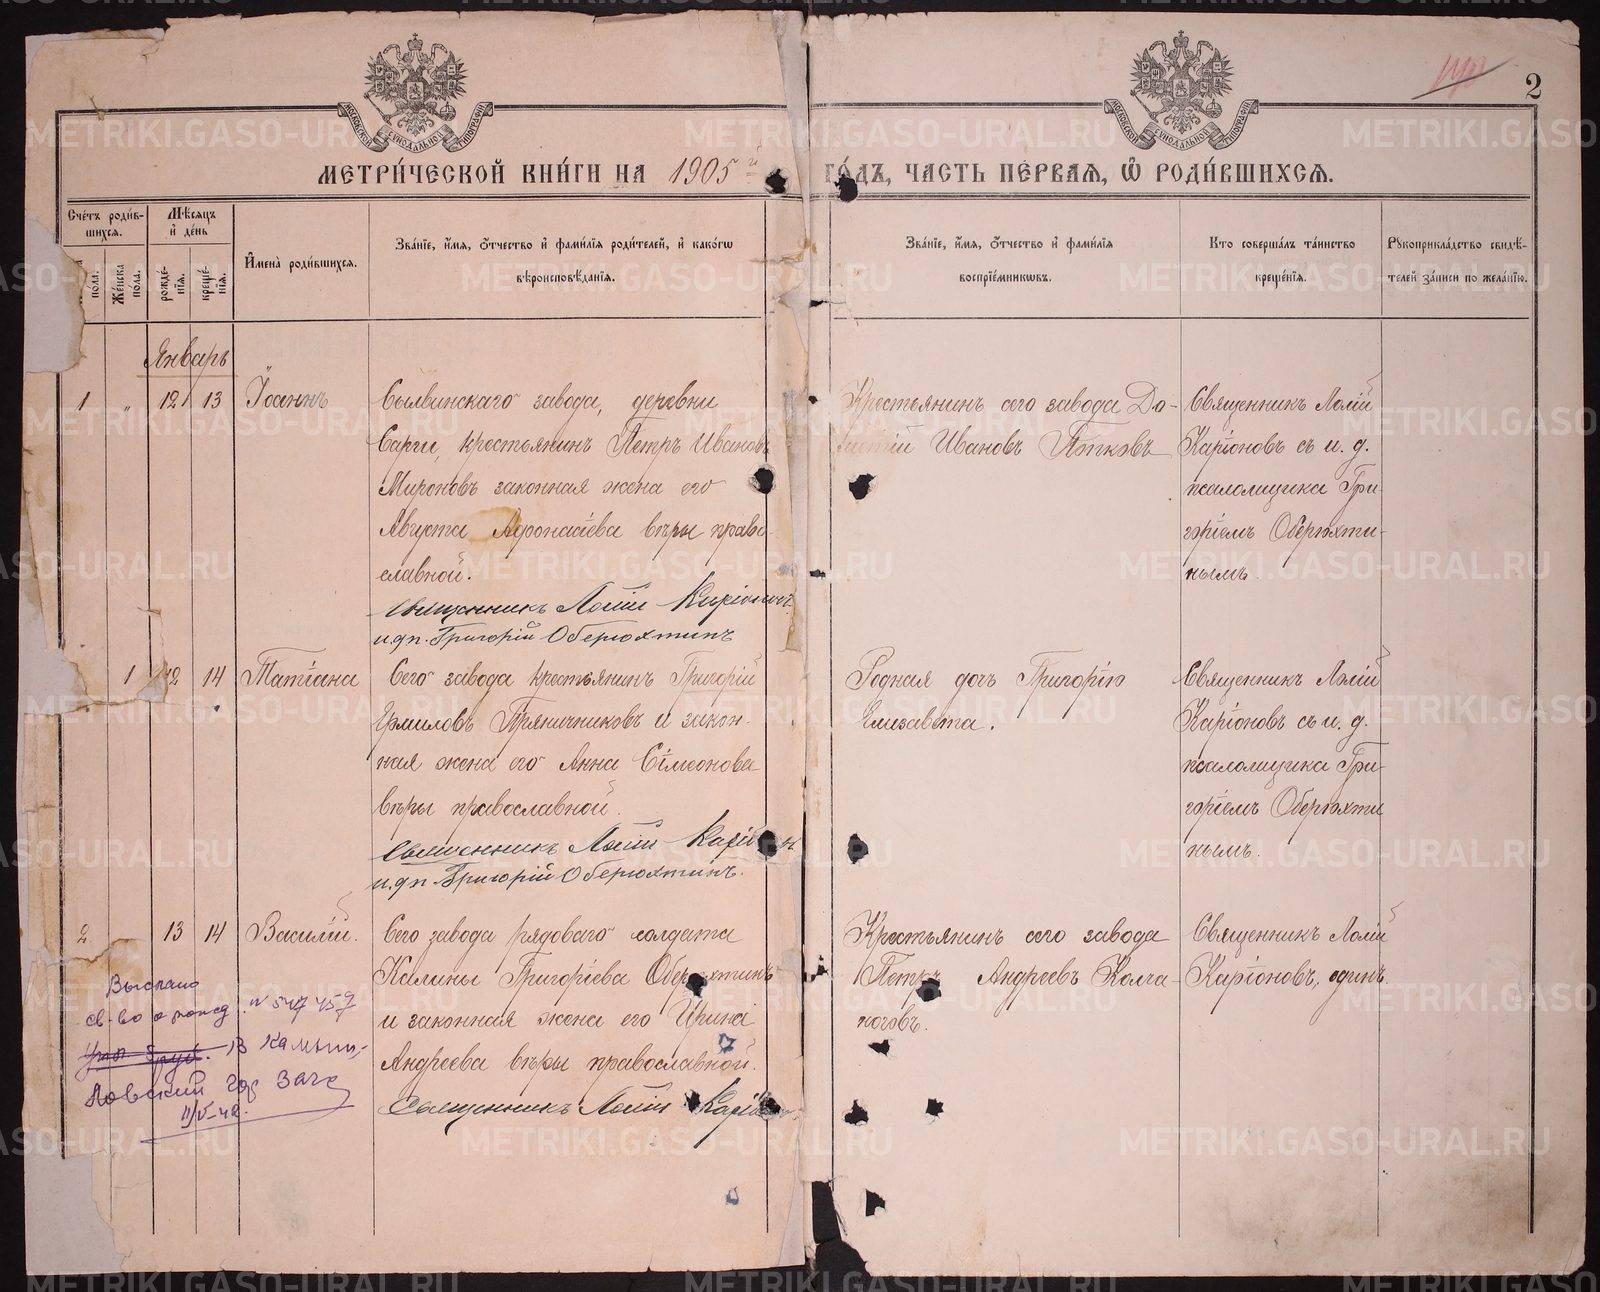 МОСКОВСКОЙ СУНОДАЛЬНОЙ ТИПОГРАФІИ
МОСКОВСКОЙ СУНОДАЛЬНОЙ ТИПОГРАФІИ
2
МЕТРИ́ЧЕСКОЙ КНИ́ГИ НА 1905 й ГО́ДЪ, ЧАСТЬ ПЕ́РВАЯ, Ѡ РОДИ́ВШИХСЯ.
Сче́тъ роди́в-
шихся.
по́ла.
Же́нска по́ла.
Мѣ́сяцъ и де́нь
рожде́-
нія.
креще́-
нія.
Имена̀ роди́вшихся.
Зва́ніе, и́мя, о́тчество и фами́лія роди́телей, и како́гѡ
вѣроисповѣ́данія.
Зва́ніе, и́мя, о́тчество и фами́лія
воспріе́мникѡвъ.
Кто соверша́лъ та́инство
креще́нія.
Рꙋкоприкла́дство свидѣ́-
телей за́писи по жела́нію.
Январь
1 " 12 13 Іоаннъ
Сылвинскаго завода, деревни
Сарги, крестьянинъ Петръ Ивановъ
Мироновъ законная жена его
Августа Афонасіева вѣры право-
славной.
Священникъ Лолій Каріоновъ
и.д.п. Григорій Оберюхтинъ
Крестьянинъ сего завода До-
Ивановъ
Священникъ Лолій
Каріоновъ съ и. д.
псаломщика Гри-
горіемъ Оберюхти-
нымъ.
1 12 14 Татіана
Сего завода крестьянинъ Григорій
Ермиловъ Пряничниковъ и закон-
ная жена его Анна Сімеонова
вѣры православной.
Священникъ Лолій Каріоновъ
и.д.п. Григорій Оберюхтинъ.
Родная дочь Григорія
Елизавета.
Священникъ Лолій
Каріоновъ съ и. д.
псаломщика Гри-
горіемъ Оберюхти
нымъ.
2 13 14 Василій.
Сего завода рядоваго солдата
Калины Григоріева Оберюхтинъ
и законная жена его Ирина
Андреева вѣры православной.
Священникъ Лолій Каріоновъ
Крестьянинъ сего завода
Петръ Андреевъ Колча-
ноговъ.
Священникъ Лолій
Каріоновъ, одинъ.
Выслано
св-во о рожд. № 547457
в Камыш-
ловский гор Загс
11/V-42.
METRIKI.GASO-URAL.RU